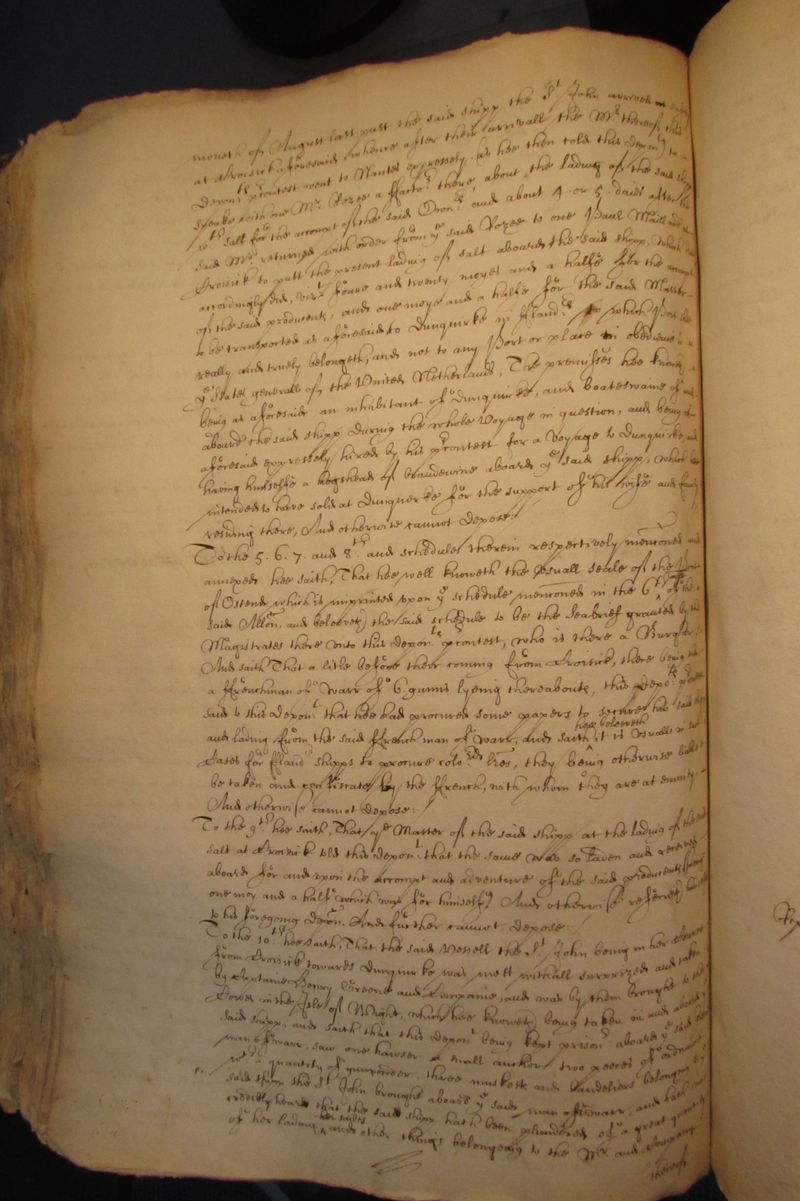 moneth of August last past the said shipp the St John arrived
at Croisick aforesaid whence after their arrivall the Mr thereof this
deponts contest went to Nantes expressely (as hee then told this depont) to
speake with one Mr Rozee a ffactor there, about the lading of the said shipp
wth salt for the accompt of the said and about 4 or 5 daies after the
said Mr returned with order from ye said Rozee to one Paul
Croisick to putt the present lading of salt aboard the said shipp, which
accordingly did, vizt foure and twenty moyes and a halfe for the accompt
of the said producents, and one moye and a halfe for the said Master
to be transported as aforesaid to Dunquirke in fflandrs to which Port shee
really and truely belongeth, and not to any Port or place in obedience to
ye States generall of the United Netherlands, The premisses hee knoweth
being as aforesaid an inhabitant of Dunquirke, and boateswaine of and
aboard the said shipp during the whole Voyage in question, and being as
aforesaid expressely hired by his contest for a Voyage to Dunquirke, and
having himselfe a hogshead of brandewine aboard ye said shipp, which hee
intended to have sold at Dunquerke for the support of his wife and family
residing there, And otherwise cannot depose:
To the 5. 6. 7. and 8th and schedules therein respectively menconed and
annexed hee saith, That hee well knoweth the usuall seale of the
of Ostend which is imprinted upon ye schedule menconed in the 6th of the
said Allon, and beleeveth the said schedule to be the Seabrief granted by the
Magistrates there unto this depots contest, who is there a Burgher
And saith That a litle before their coming from Croisick, there being
a ffrenchman of warr of 6 gunns lyeing thereabouts, this depots
said to this deponent that hee had procured some papers to secure his said shipp
and lading from the said ffrench man of warr, and saith hee beleeveth it is usuall in
cases for flandrs shipps to procure colorable they being otherwise liable to
be taken and confiscate by the ffrench, with whom they are at enmity
And otherwise cannot depose:
To the 9th hee saith, That ye Master of the said shipp at the lading of the said
salt at Croisick told this depont that the same was so laden and received
aboard for and upon the accompt and adventure of the said producents
one moy and a halfe which was for himselfe) And otherwise referreth
to his foregoing depon. And further cannot depose:
To the 10th hee saith, That the said Vessell the St John being in her course
from Croisick towards Dunquirke was mett withall surprized and taken
by Captaine Henry Greene and Companie, and was by them brought to the
Cowes in the Isle of Wight, which hee knoweth being taken in and aboard ye
said shipp, and saith that this depont being kept prisonr aboard ye said
man of warr, saw one hawser a small anchor two peeces of ordnance
wth a quantity of gunpowder, three musketts and bandeliers belonging to
said shipp the St John brought aboard ye said man of warr, and hath
credibly heard that the said shipp hath been plundered of a great quantity
of her lading and other things belongeing to the Mr and Company
thereof